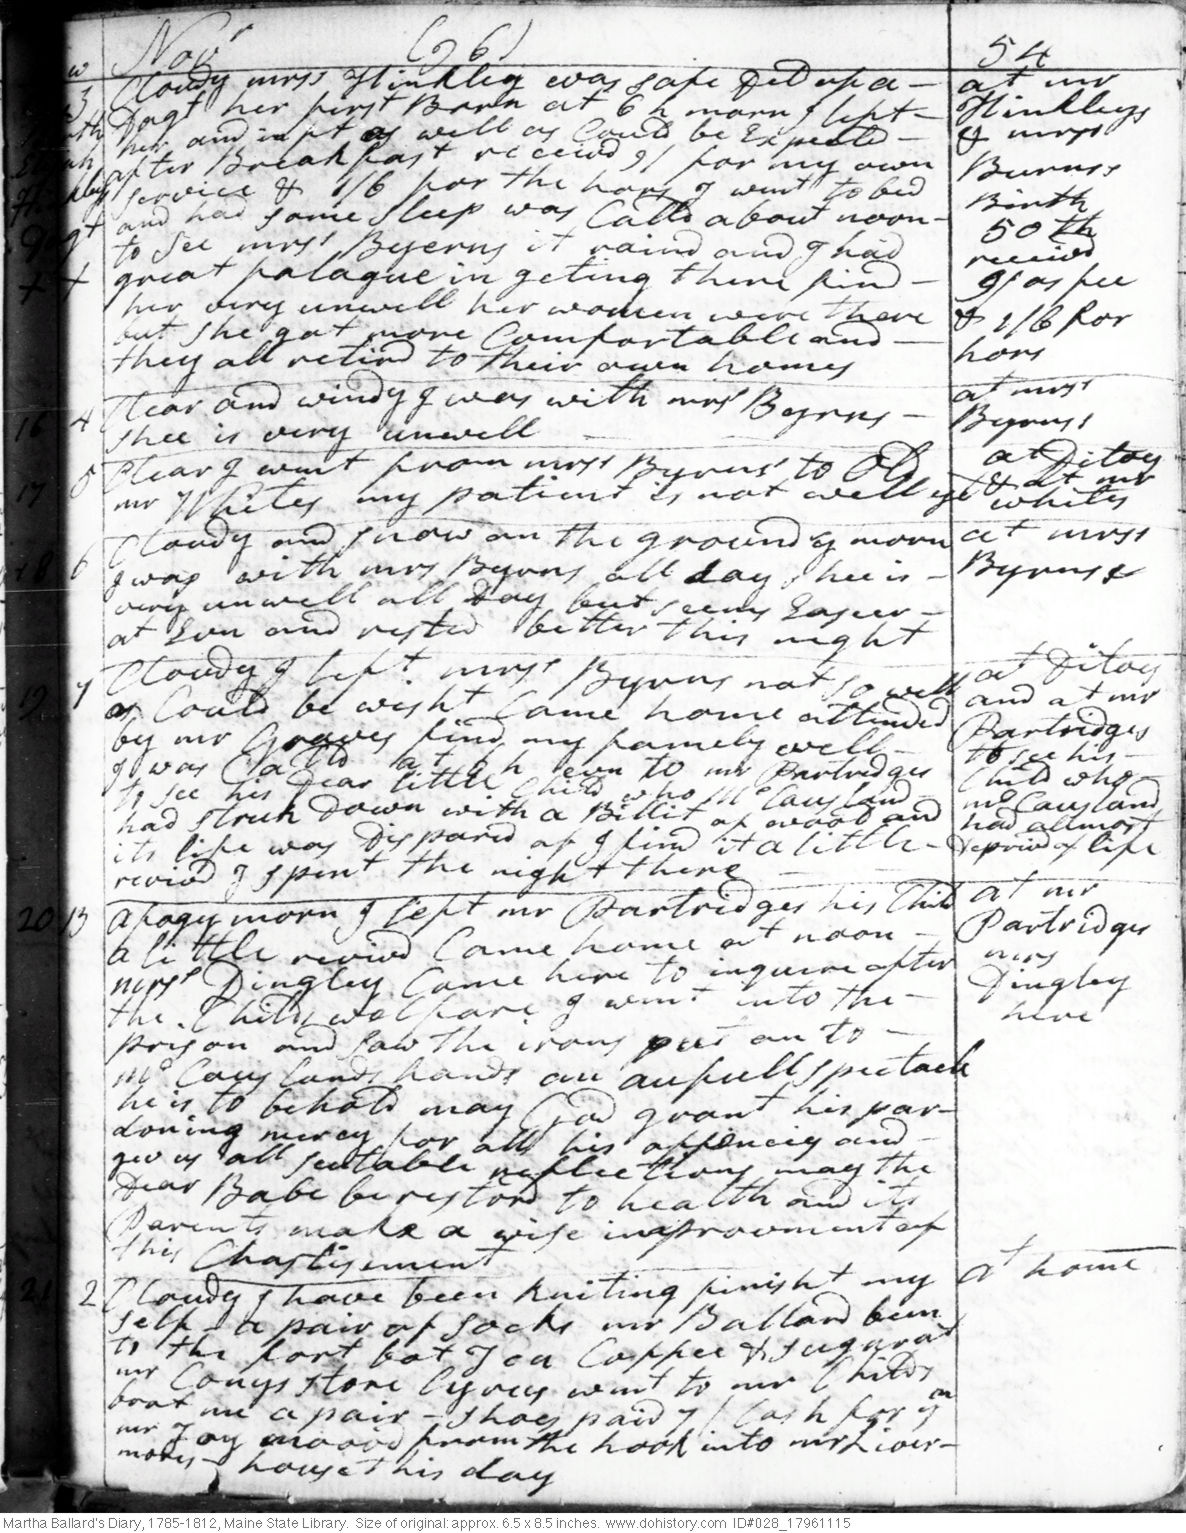 Novr (96) 54
w
Cloudy mrss Hinkley was safe Deld of a at mr
3 Dagt her first Born at 6 h morn I left Hinkleys
Birth her and inft as well as Could be Expected & mrss
after Breakfast received 9/ for my own Burnss
service & 1/6 for the hors I went to bed Birth
and had some sleep was Calld about noon 50th
to See mrss Byerns it raind and I had received
x x great palague in geting there find 9/ as fee
her very unwell her women were there & 1/6 for
but she got more Comfortable and hors
they all retird to their own homes
16 4 Clear and windy I was with mrs Byrns at mrss
shee is very unwell Byrnss
17 5 Clear I went from mrss Byrns to Old at Ditoes
mr Whites my patient is not well yet & at mr whites
18 6 Cloudy and snow on the ground ys morn at mrss
I was with mrs Byrns all day shee is Byrnss
very unwell all Day but seems Easier
at Evn and rested better this night
19 7 Cloudy I left mrss Byrns not so well at Ditoes
as Could be wisht Came home attended and at mr
by mr Graves find my famely well Partridges
I was Calld at h evn to mr Partridges to see his
to see his Dear little Child who Mc Causland Child who
had struk down with a Billit of wood and mc Causland had allmost
its life was Dispared of I find it a little deprivd of life
revivd I spent the night there
20 B a fogy morn I left mr Partridges his Child at mr
a little revivd Came home at noon Partridges
mrss Dingley Came here to inquire after mrs
the Childs welfare I went into the Dingley
prison and saw the irons put on to here
Mc Causlands hands an aufull spectacle
he is to behold may God grant his par-
doning mercy for all his offencies and
giv us all seutable reflections may the
Dear Babe be restord to health and its
Parents make a wise improovment of
this Chastisement
21 2 Cloudy I have been kniting finisht my at home
self a pair of socks mr Ballard been
to the fort bot Tea Coffee & sugar at
mr Conys store Cyrus went to mr Childs
boat me a pair shoes paid 7/ Cash for ym
mr Foy moovd from the hook into mr Liver-
mores house this day
Martha Ballard's Diary, 1785-1812, Maine State Library. Size of original: approx. 6.5 x 8.5 inches. www.dohistory.com ID#028_17961115